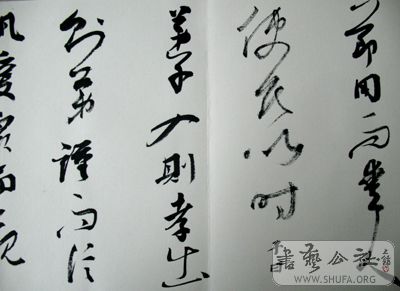 節用而愛人
使民以时
子曰
弟子入則孝出
則弟謹而信
汎愛衆而親
書藝公社
WWW.SHUFA.ORG